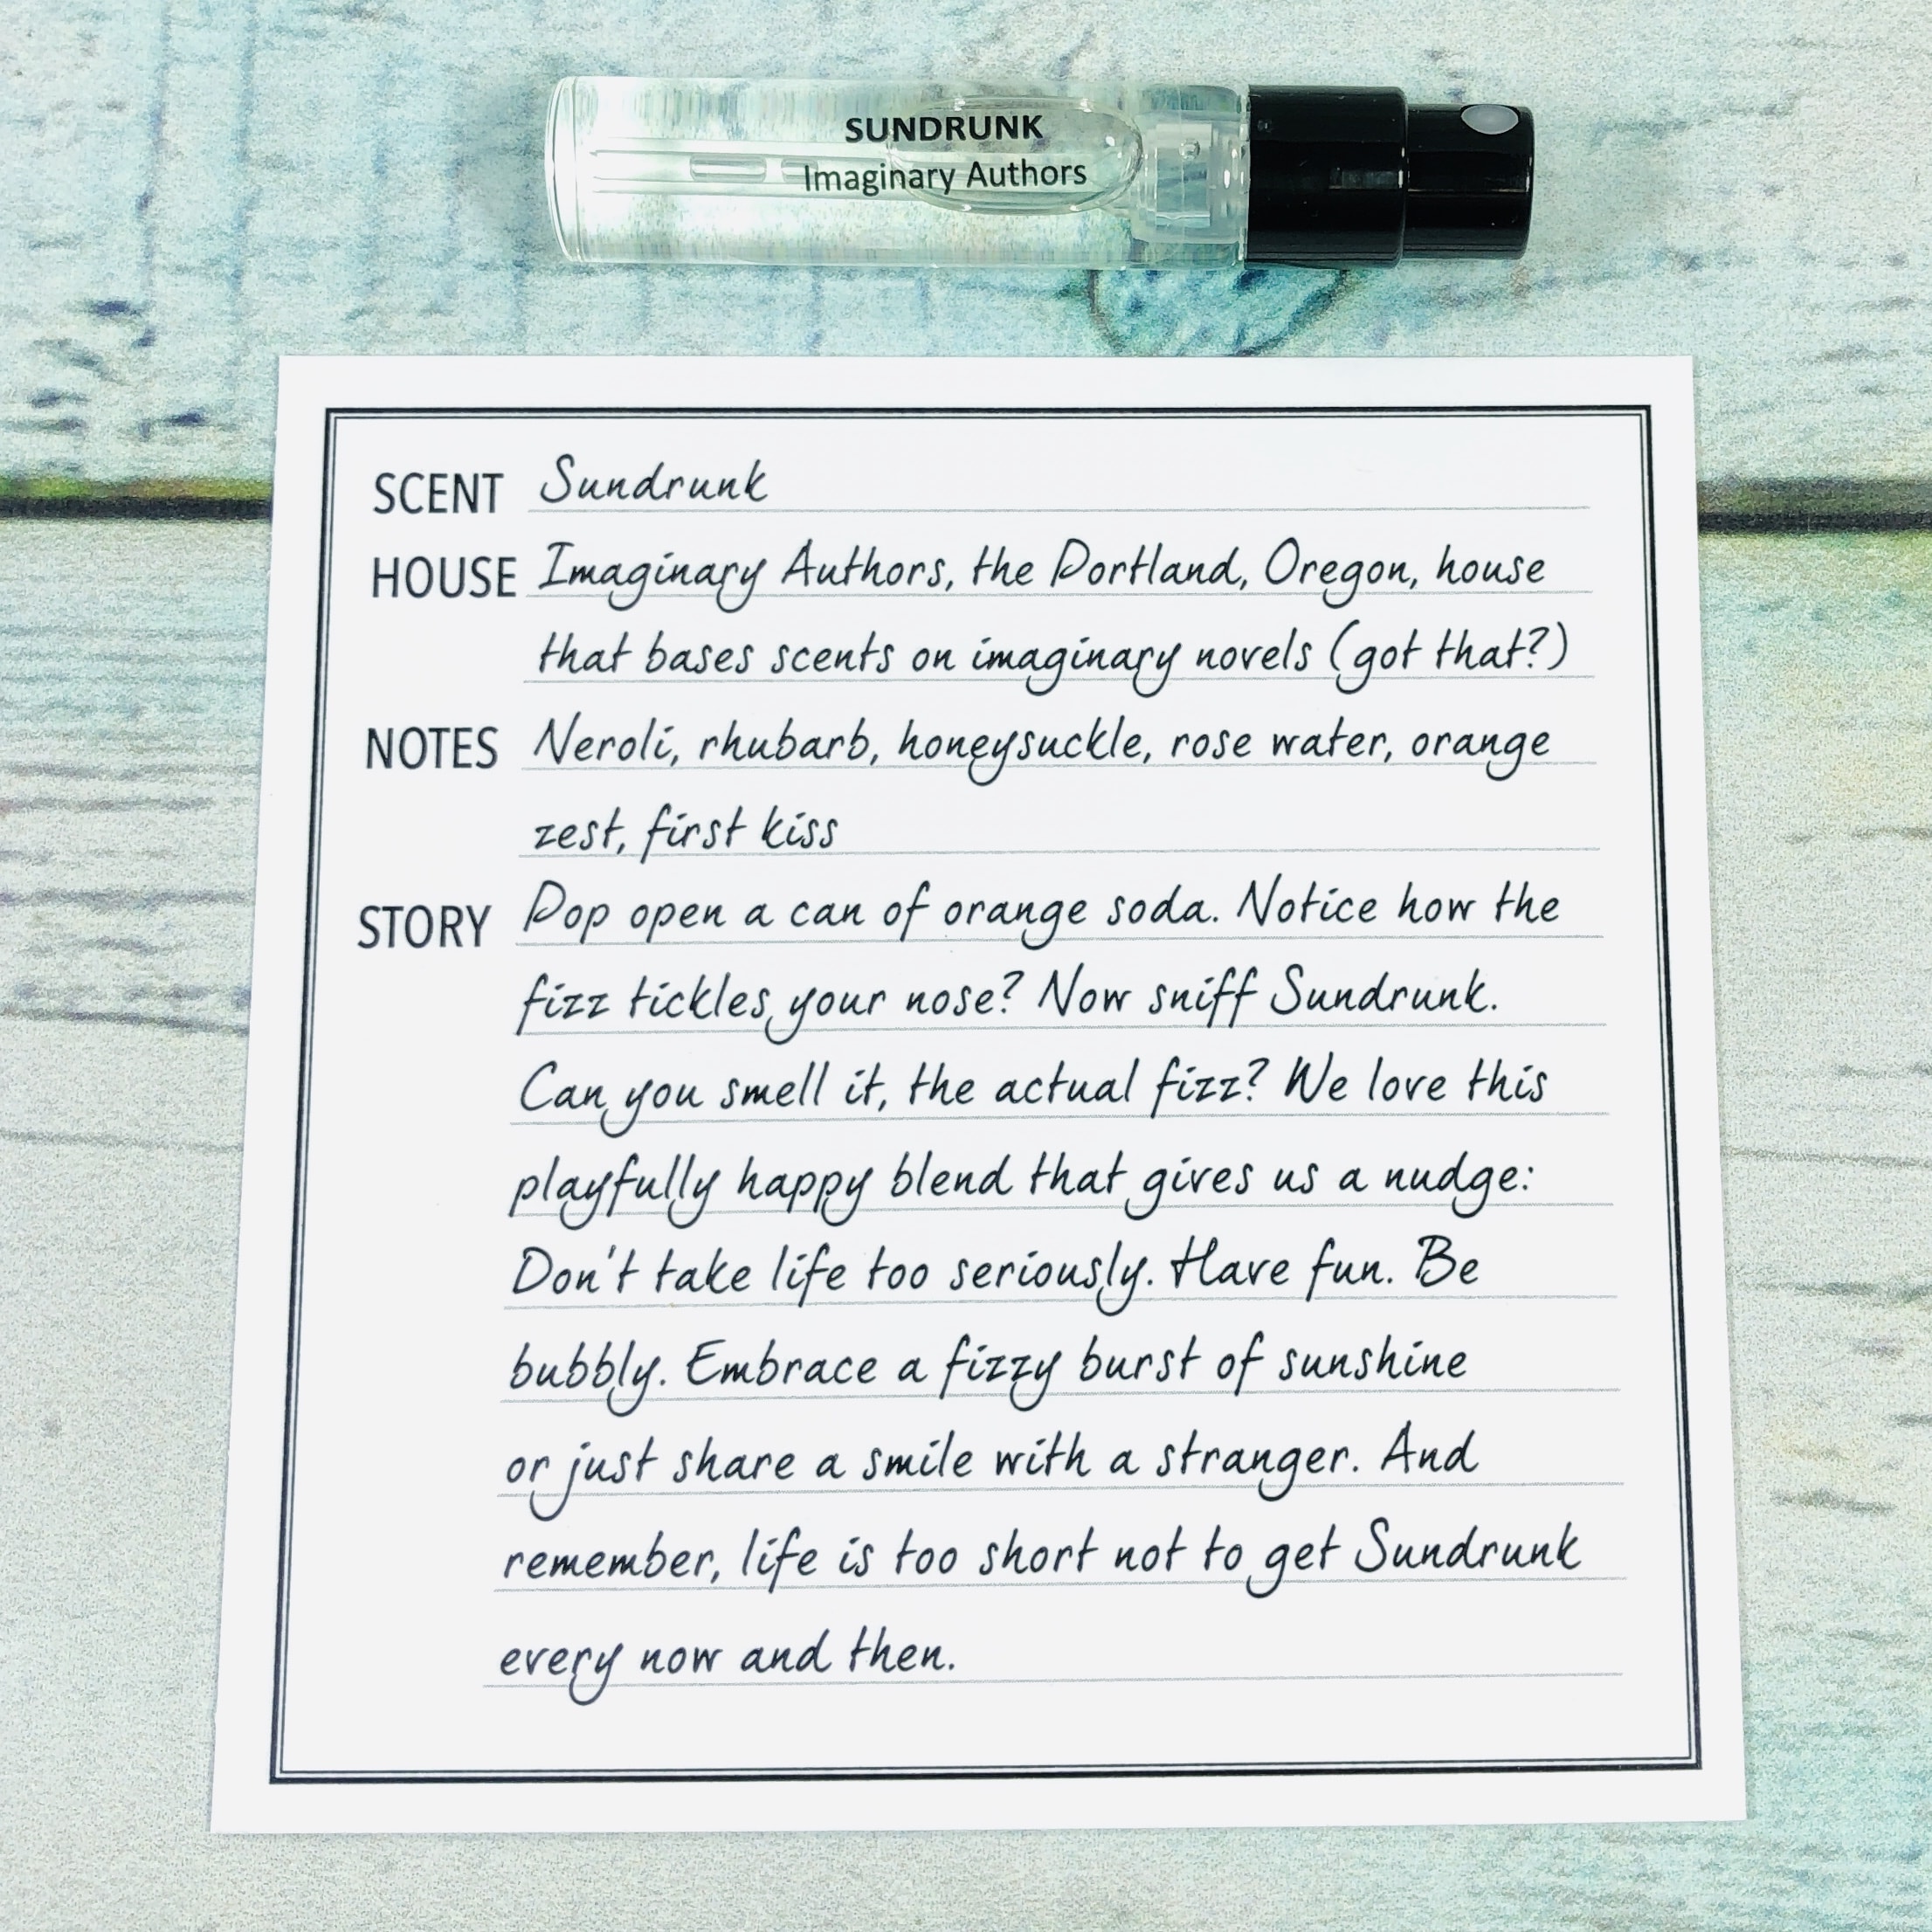 SUNDRUNK
Imaginary Authors
SCENT Sundrunk
HOUSE Imaginary Authors, the Portland, Oregon, house
that bases scents on imaginary novels (got that?)
NOTES Neroli, rhubarb, honeysuckle, rose water, orange
zest, first kiss
STORY Pop open a can of orange soda. Notice how the
fizz tickles your nose? Now sniff Sundrunk.
Can you smell it, the actual fizz? We love this
playfully happy blend that gives us a nudge:
Don't take life too seriously. Have fun. Be
bubbly. Embrace a fizzy burst of sunshine
or just share a smile with a stranger. And
remember, life is too short not to get Sundrunk
every now and then.